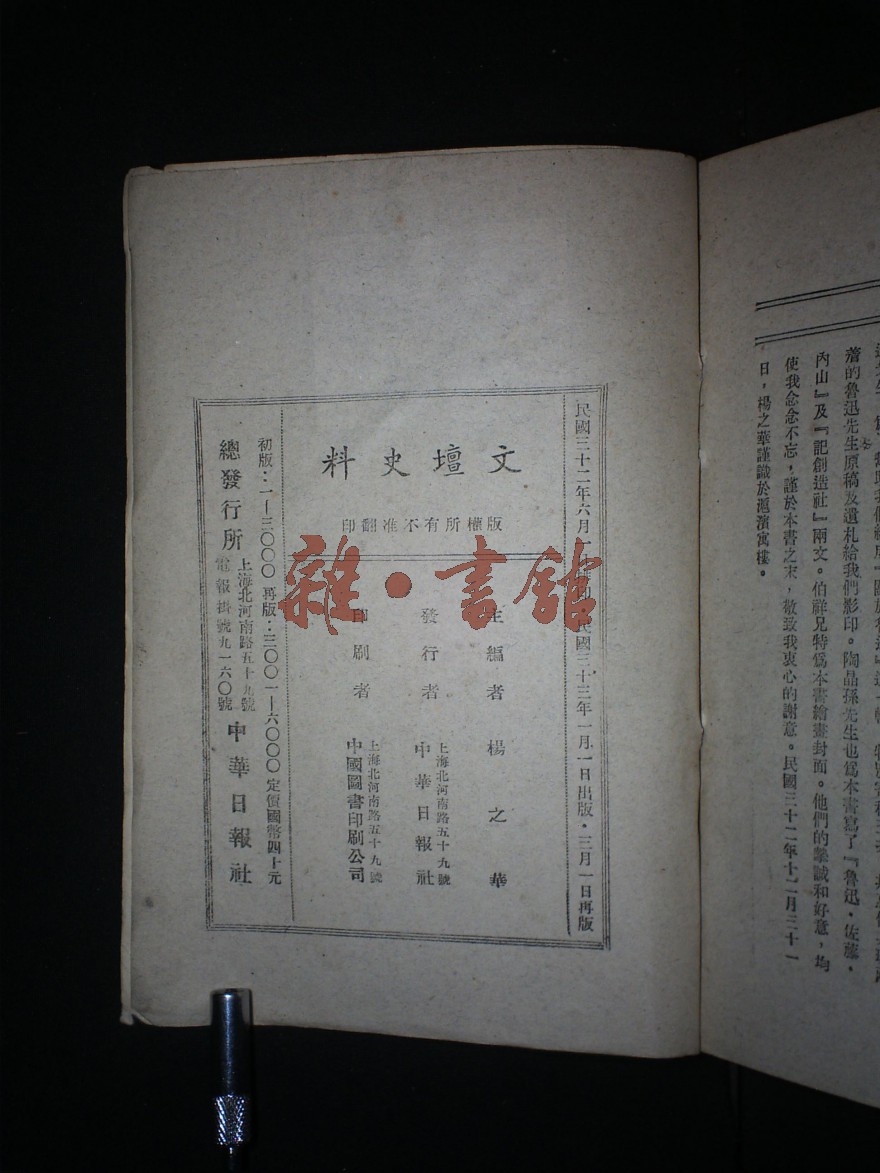 著的魯迅先生原稿及遺札給我們影印。陶晶孫先生也爲本書寫了『魯迅・佐藤・
內山』及『記創造社』兩文。伯祥兄特爲本書繪畫封面。他們的摯誠和好意，均
使我念念不忘，謹於本書之末，敬致我衷心的謝意。民國三十二年十二月三十一
日，楊之華謹識於滬濱寓樓。
民國三十二年六月 民國三十三年一月一日出版・三月一日再版
文壇史料
版權所有不准翻印
主編者 楊之華
發行者 上海北河南路五十九號
中華日報社
印刷者 上海北河南路五十九號
中國圖書印刷公司
初版：一—三〇〇〇 再版：三〇〇一—六〇〇〇 定價國幣四十元
總發行所 上海北河南路五十九號
電報掛號九一六〇號
中華日報社
雜・書館